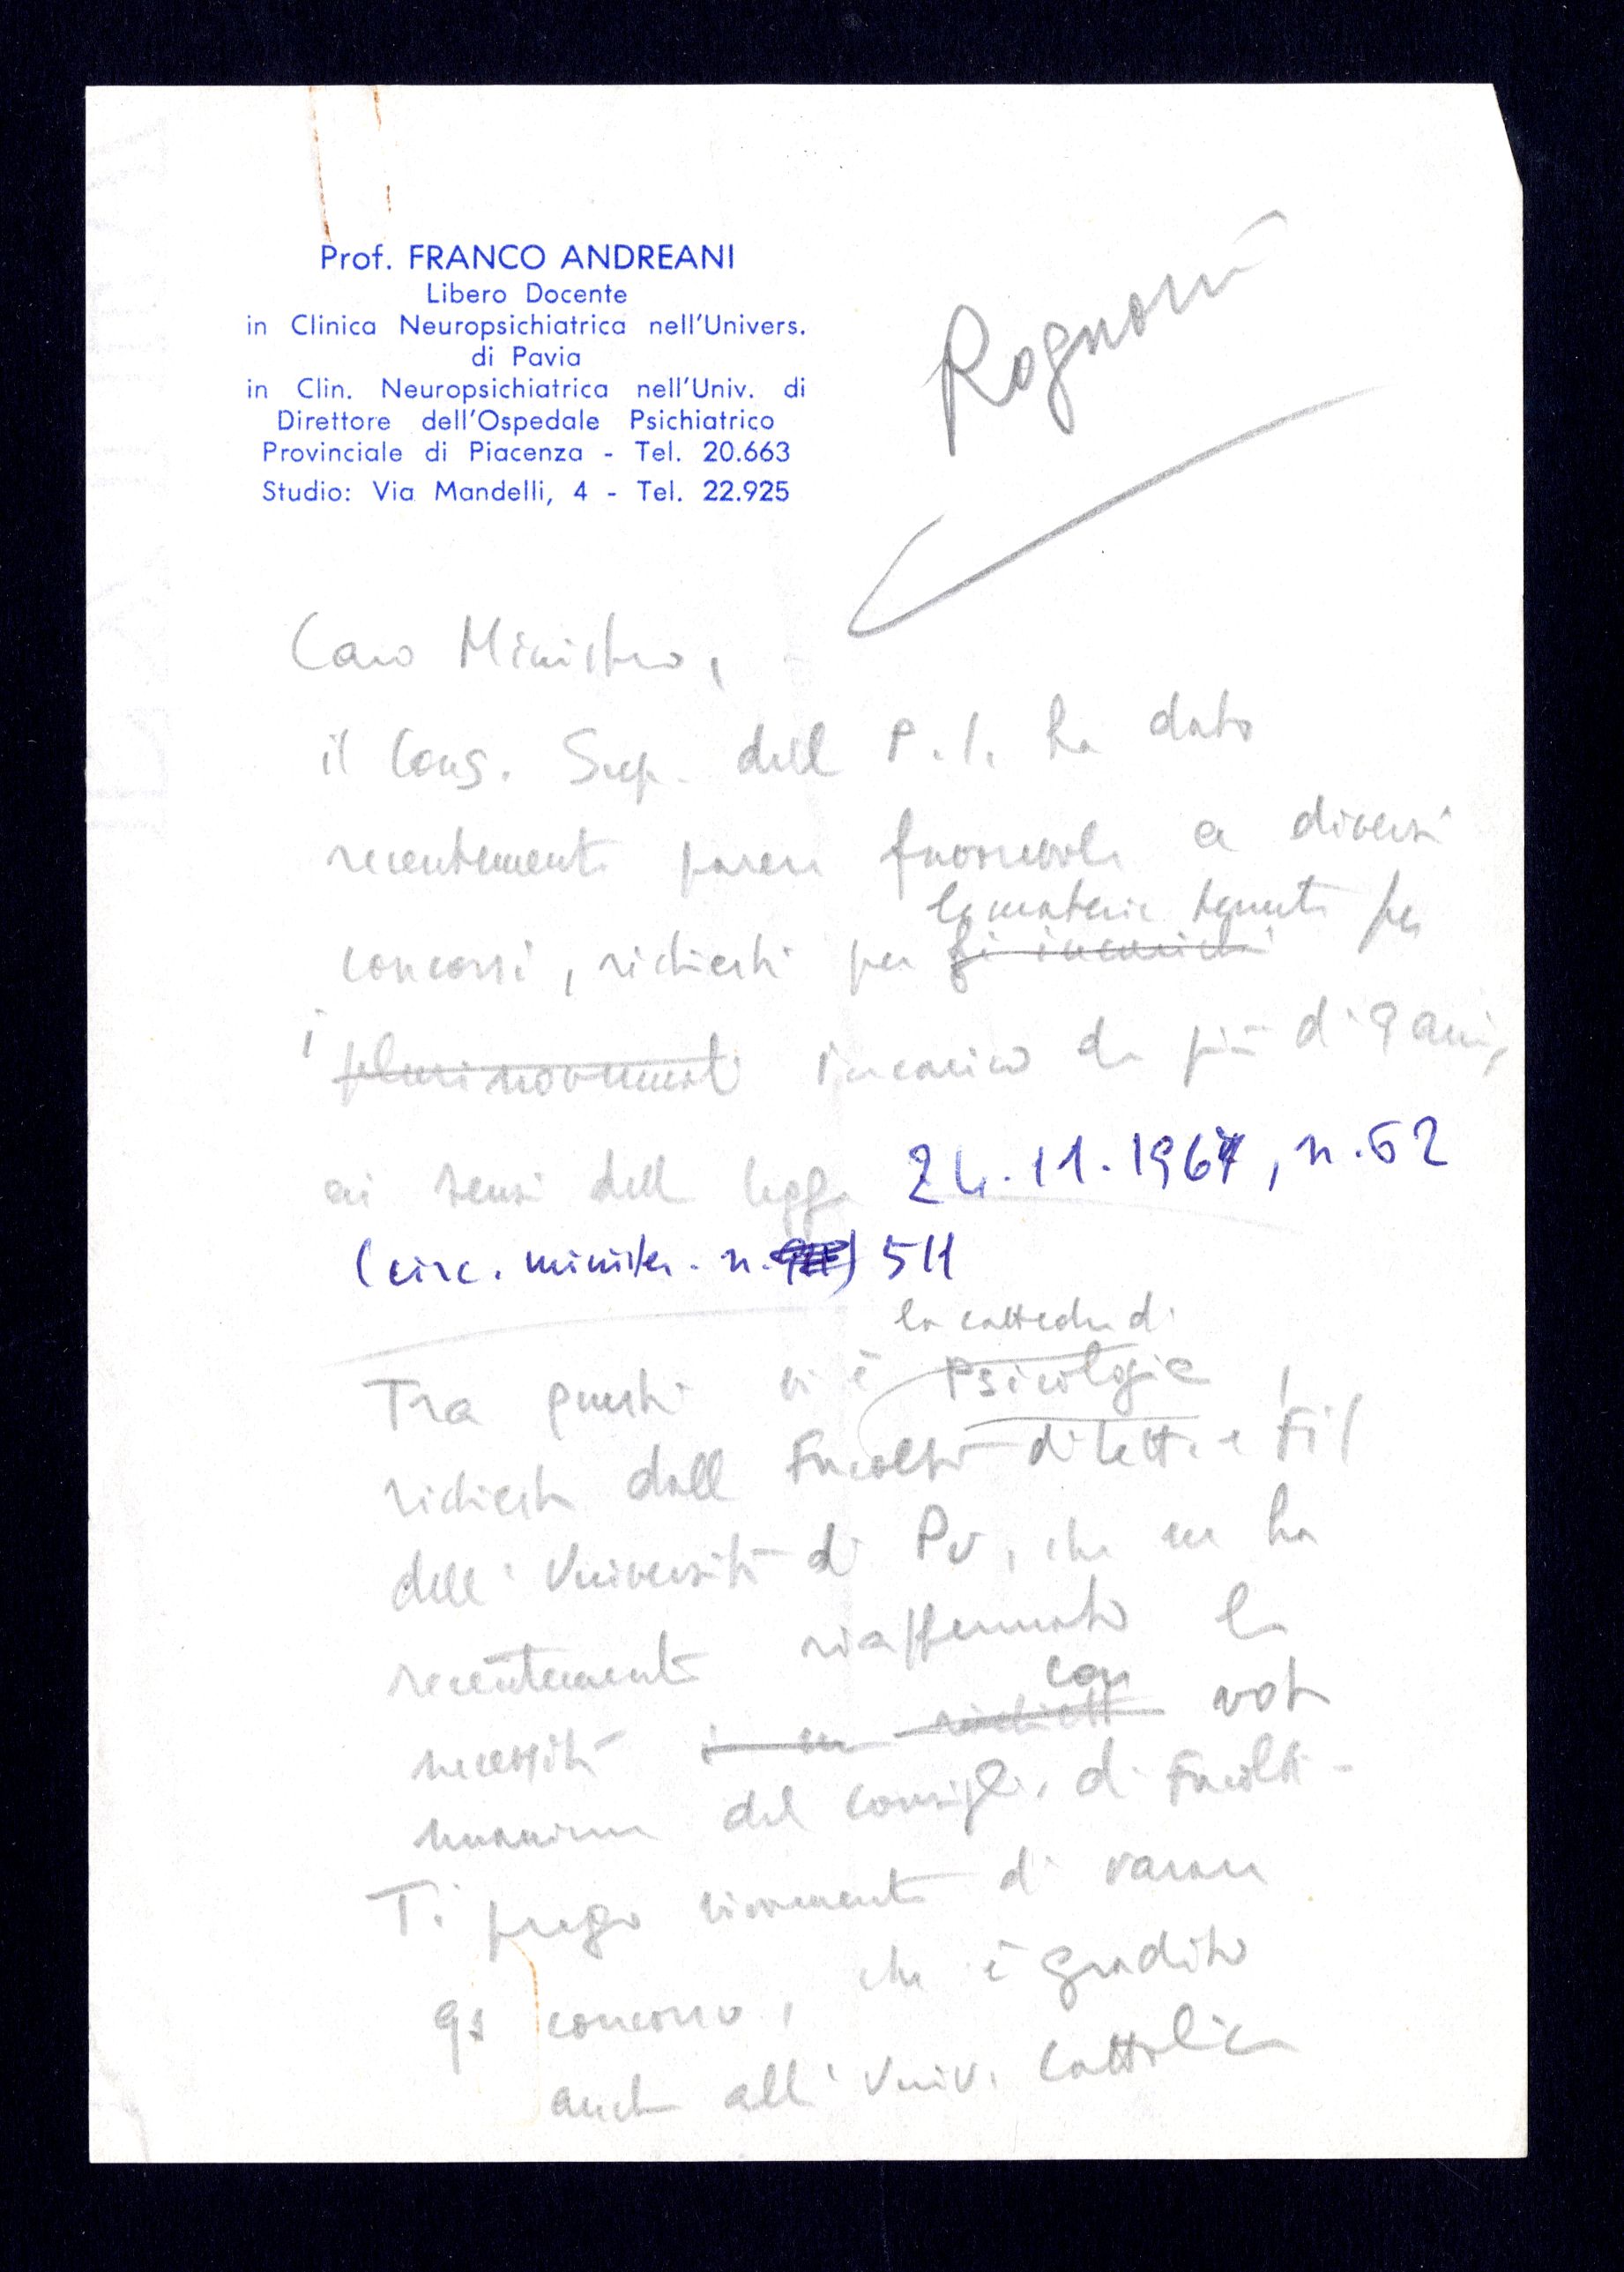 Prof. FRANCO ANDREANI
Libero Docente
in Clinica Neuropsichiatrica nell'Univers.
di Pavia
in Clin. Neuropsichiatrica nell'Univ. di
Direttore dell'Ospedale Psichiatrico
Provinciale di Piacenza - Tel. 20.663
Studio: Via Mandelli, 4 - Tel. 22.925
Rognoni
Caro Ministro,
il Cons. Sup. dell P.I. ha dato
recentemente parere favorevole a diversi
le materie tenute per
concorsi, richiesti per gi incarichi
i plurinovennali incarico da più di 9 anni,
ai sensi dell legge 24.11.1967, n. 62
(circ. minister. n. 511
la cattedra di
Tra questi vi è Psicologia,
richiesta dall Facoltà di Lett. e Fil
dell'Università di Pv, che ne ha
recentemente riaffermato la
con
necessità voto
unanime del Consiglio di Facoltà.
Ti prego vivamente di varare
qs concorso, che è gradito
anche all'Univ. Cattolica